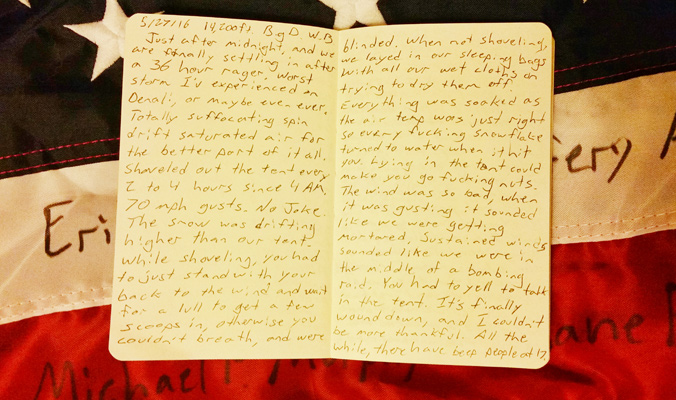 5/27/16 14,200ft. B.g D. W.B
Just after midnight, and we
are finally settling in after
a 36 hour rager. Worst
storm I'v experienced on
Denali, or maybe even ever.
Totally suffocating spin
drift saturated air for
the better part of it all.
Shoveled out the tent every
2 to 4 hours since 4 AM.
70 mph gusts. No Joke.
The snow was drifting
higher than our tent.
While shoveling, you had
to just stand with your
back to the wind and wait
for a lull to get a few
scoops in, otherwise you
couldn't breath, and were
blinded. When not shoveling,
we layed in our sleeping bags
with all our wet cloths on
trying to dry them off.
Everything was soaked as
the air temp was just right
so every fucking snowflake
turned to water when it hit
you. Lying in the tent could
make you go fucking nuts.
The wind was so bad, when
it was gusting it sounded
like we were getting
mortared. Sustained winds
sounded like we were in
the middle of a bombing
raid. You had to yell to talk
in the tent. It's finally
wound down, and I couldn't
be more thankful. All the
while, there have been people at 17
Eri
fery A
Michael P. Murphy
ane